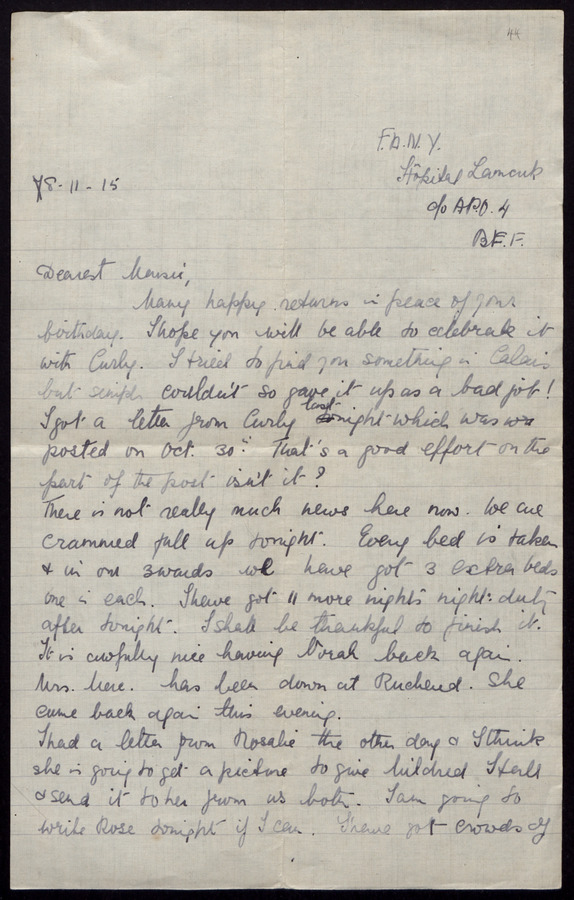 44
F.A.N.Y.
Hôpital Lamark
8-11-15
c/o A.P.O. 4
B.E.F.
Dearest
Many happy returns in peace of your
birthday. I hope you will be able to celebrate it
with Curly. I tried to find you something in Calais
but simply couldn't so gave it up as a bad job!
I got a letter from Curly last night which was
posted on Oct. 30th That's a good effort on the
part of the post isn't it?
There is not really much news here now. We are
crammed full up tonight. Every bed is taken
& in our 3 wards we have got 3 extra beds
one in each. I have got 11 more nights night duty
after tonight. I shall be thankful to finish it.
It is awfully nice having Norah back again.
Mrs. has been down at. She
came back again this evening.
I had a letter from Rosalie the other day & I think
she is going to get a picture to give Mildred
& send it to her from us both. I am going to
write Rose tonight if I can. I have got crowds of